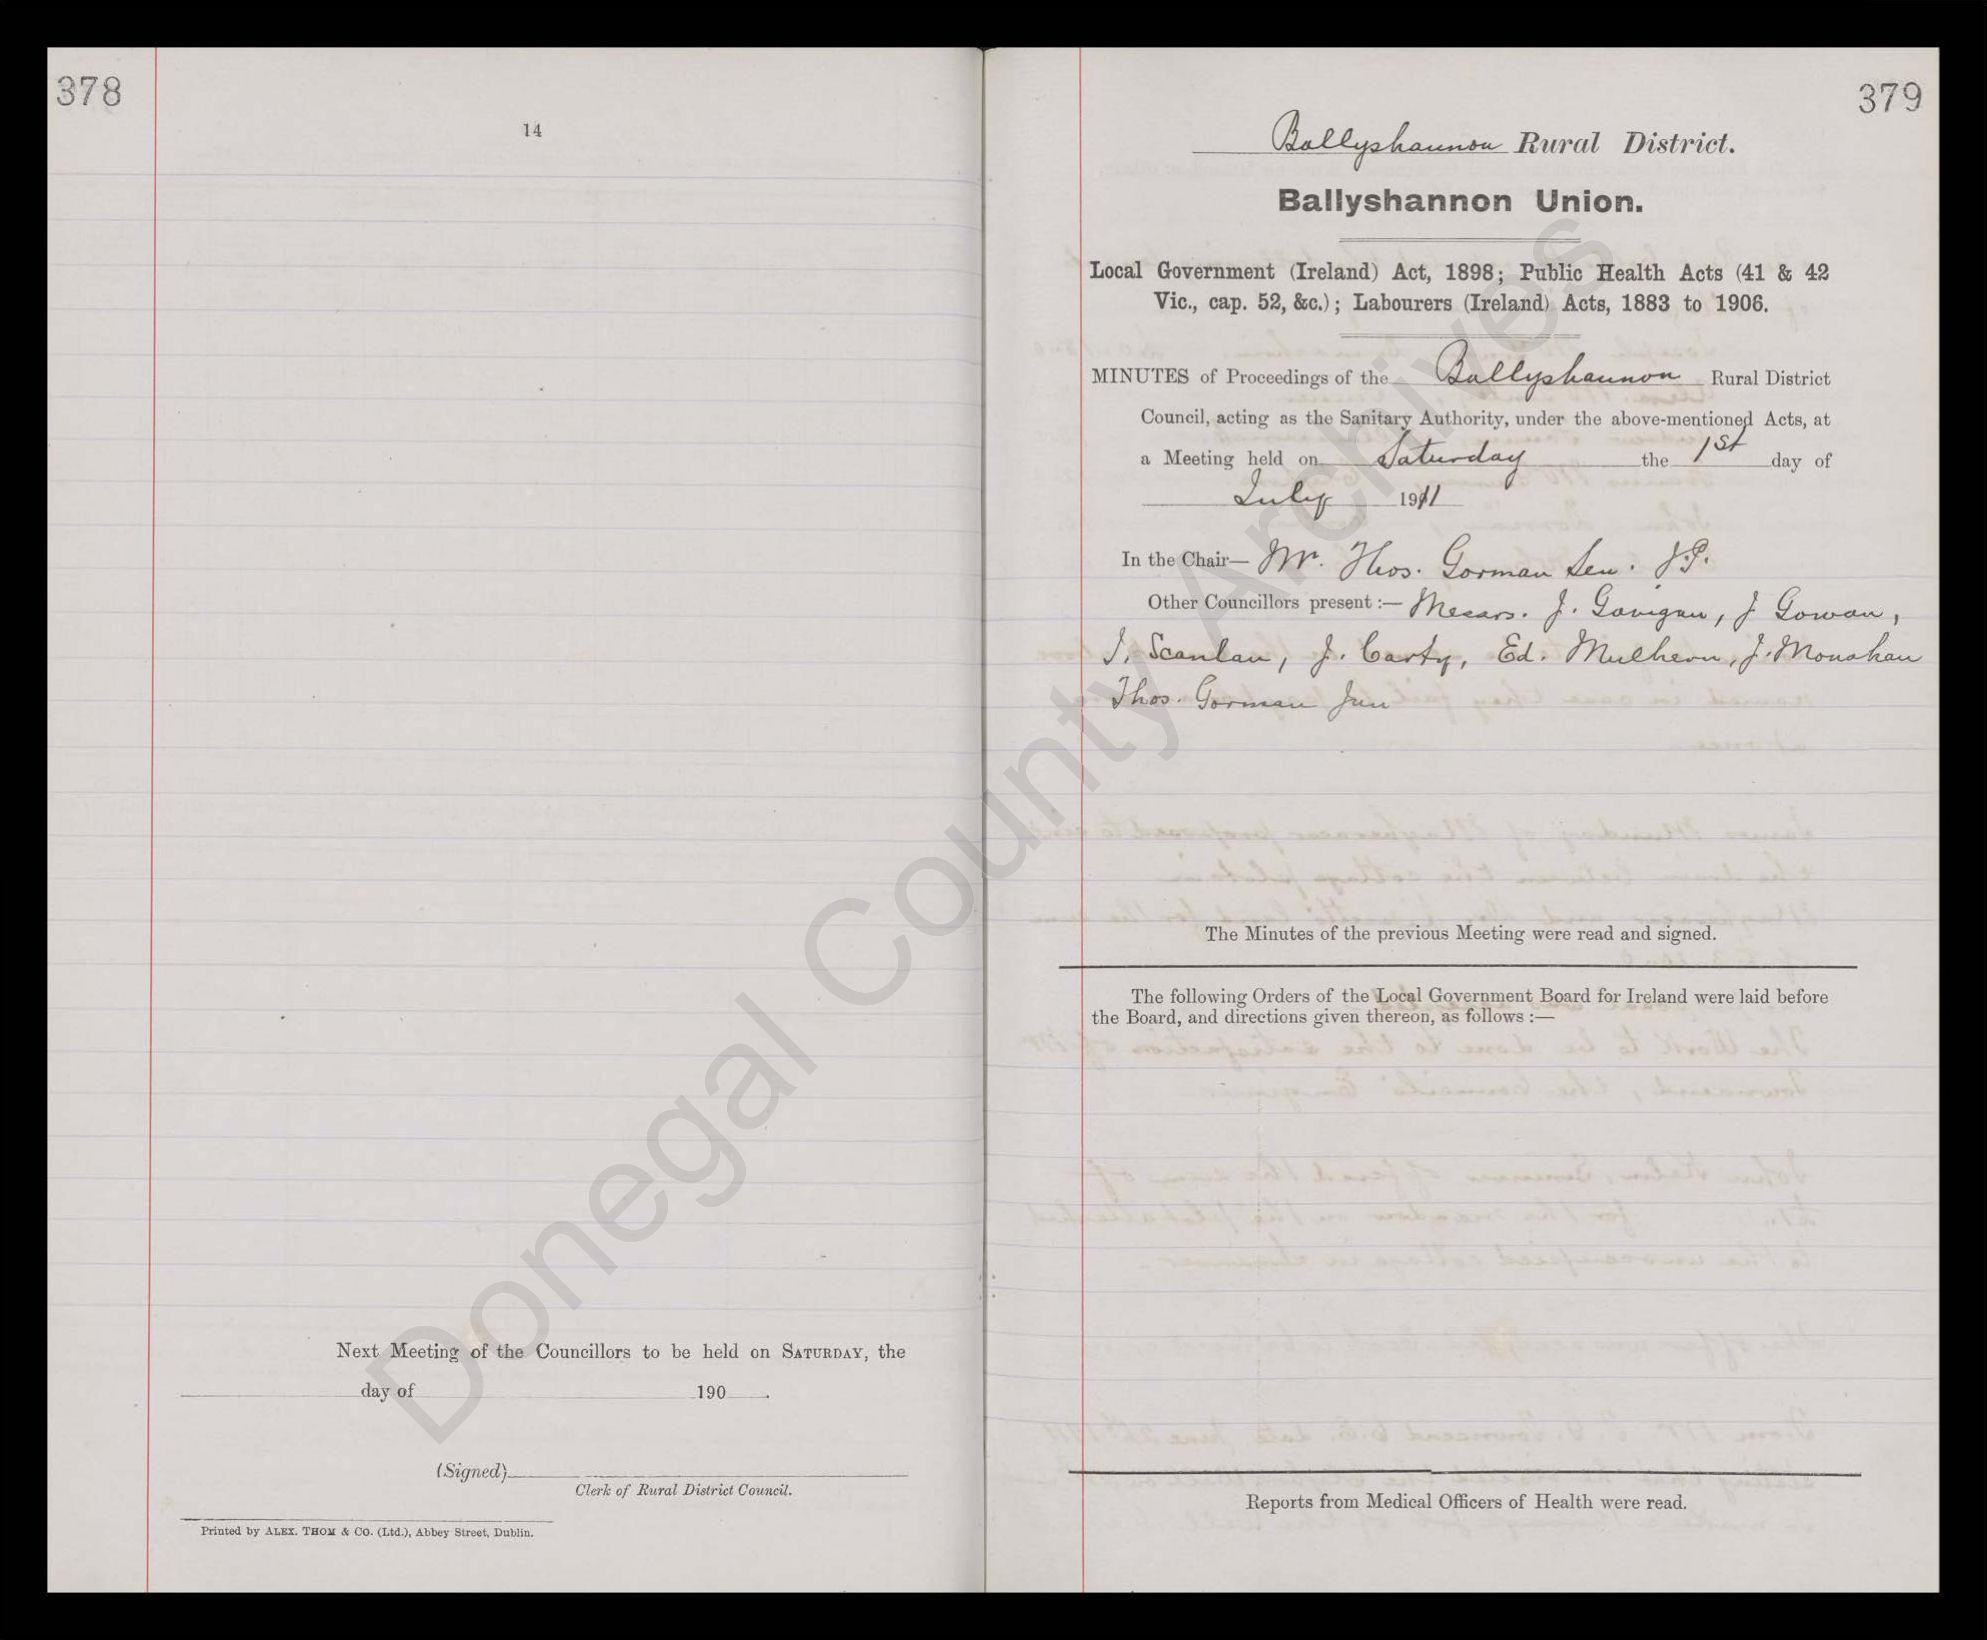 378
14
Next Meeting of the Councillors to be held on SATURDAY, the
day of 190 .
(Signed)
Clerk of Rural District Council.
Printed by ALEX. THOM & CO. (Ltd.), Abbey Street, Dublin.
379
Ballyshannon Rural District.
Ballyshannon Union.
Local Government (Ireland) Act, 1898; Public Health Acts (41 & 42
Vic., cap. 52, &c.); Labourers (Ireland) Acts, 1883 to 1906.
MINUTES of Proceedings of the Ballyshannon Rural District
Council, acting as the Sanitary Authority, under the above-mentioned Acts, at
a Meeting held on Saturday the 1st day of
July 1911
In the Chair— Mr. Thos. Gorman Sen. J.P.
Other Councillors present :— Messrs. J. Gavigan, J Gowan,
J. Scanlan, J. Carty, Ed. Mulhern, J. Monahan
Thos. Gorman Jun
The Minutes of the previous Meeting were read and signed.
The following Orders of the Local Government Board for Ireland were laid before
the Board, and directions given thereon, as follows :—
Reports from Medical Officers of Health were read.
Donegal County Archives